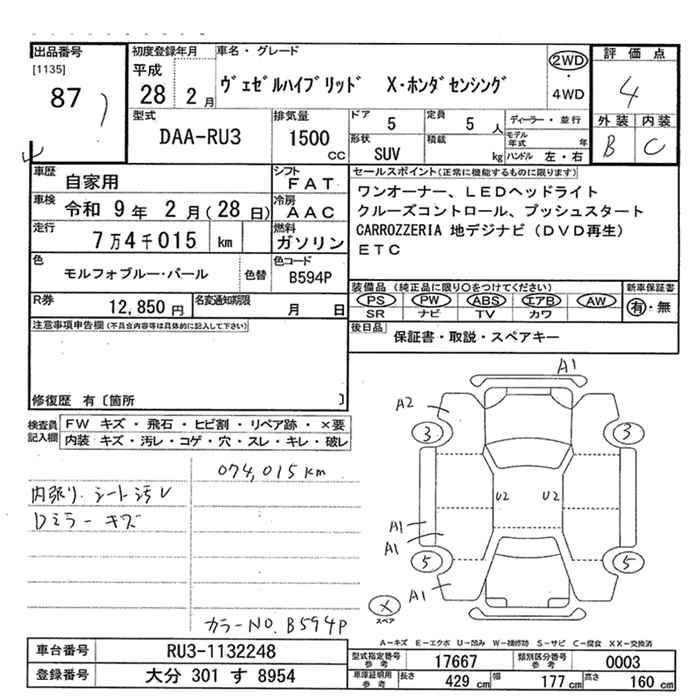 出品番号
[1135]
87
初度登録年月
平成
28 2 月
車名・グレード
ヴェゼルハイブリッド X・ホンダセンシング
2WD
・
4WD
評価点
4
外装 内装
B C
型式
DAA-RU3
排気量
1500
CC
ドア 5
定員 5 人
形状 SUV
積載 kg
ディーラー・並行
モデル年式 年
ハンドル 左・右
車歴 自家用
シフト FAT
車検 令和 9 年 2 月(28日)
冷房 AAC
走行 7万4千015 km
燃料 ガソリン
色 モルフォブルー・パール
色替
色コード B594P
R券 12,850 円
名変通知期限 月 日
セールスポイント(正常に機能するものに限ります)
ワンオーナー、LEDヘッドライト
クルーズコントロール、プッシュスタート
CARROZZERIA 地デジナビ(DVD再生)
ETC
装備品(純正品に限り○をつけてください)
PS PW ABS エアB AW
SR ナビ TV カワ
新車保証書
有・無
後日品 保証書・取説・スペアキー
注意事項申告欄(不具合内容等は具体的に記入して下さい)
修復歴 有〔箇所 〕
検査員記入欄
FW キズ・飛石・ヒビ割・リペア跡・×要
内装 キズ・汚レ・コゲ・穴・スレ・キレ・破レ
074,015km
内張り、シート汚レ
Dミラーキズ
カラーNO. B594P
A1
A2
3 3
U2 U2
A1
A1
5 5
A1
×
スペア
A-キズ E-エクボ U-凹み W-補修跡 S-サビ C-腐食 XX-交換済
車台番号 RU3-1132248
登録番号 大分 301 す 8954
型式指定番号 参考 17667
類別区分番号 参考 0003
車庫証明用 参考 長さ 429 cm 幅 177 cm 高さ 160 cm